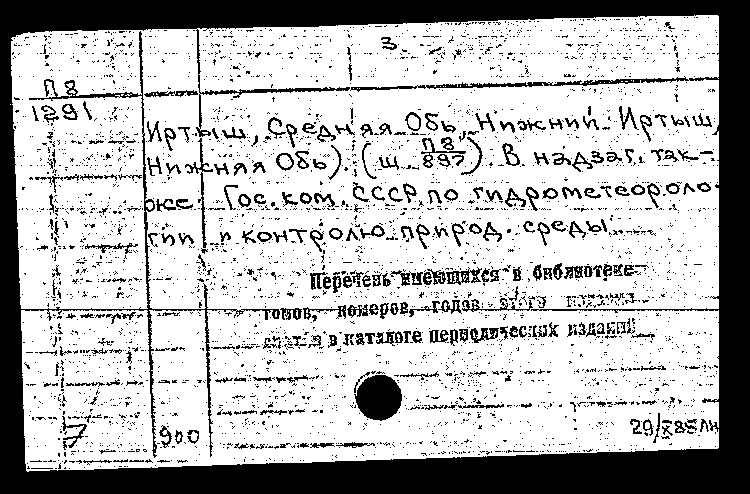 3.
П8
1291
Иртыш, Средняя Обь, Нижний Иртыш,
Нижняя Обь). (Ш П8/897). В надзаг. так-
же: Гос. ком. СССР по гидрометеороло-
гии и контролю природ. среды.
Перечень имеющихся в библиотеке
томов, номеров, годов этого издания
в каталоге периодических изданий
7 900 29/X 88